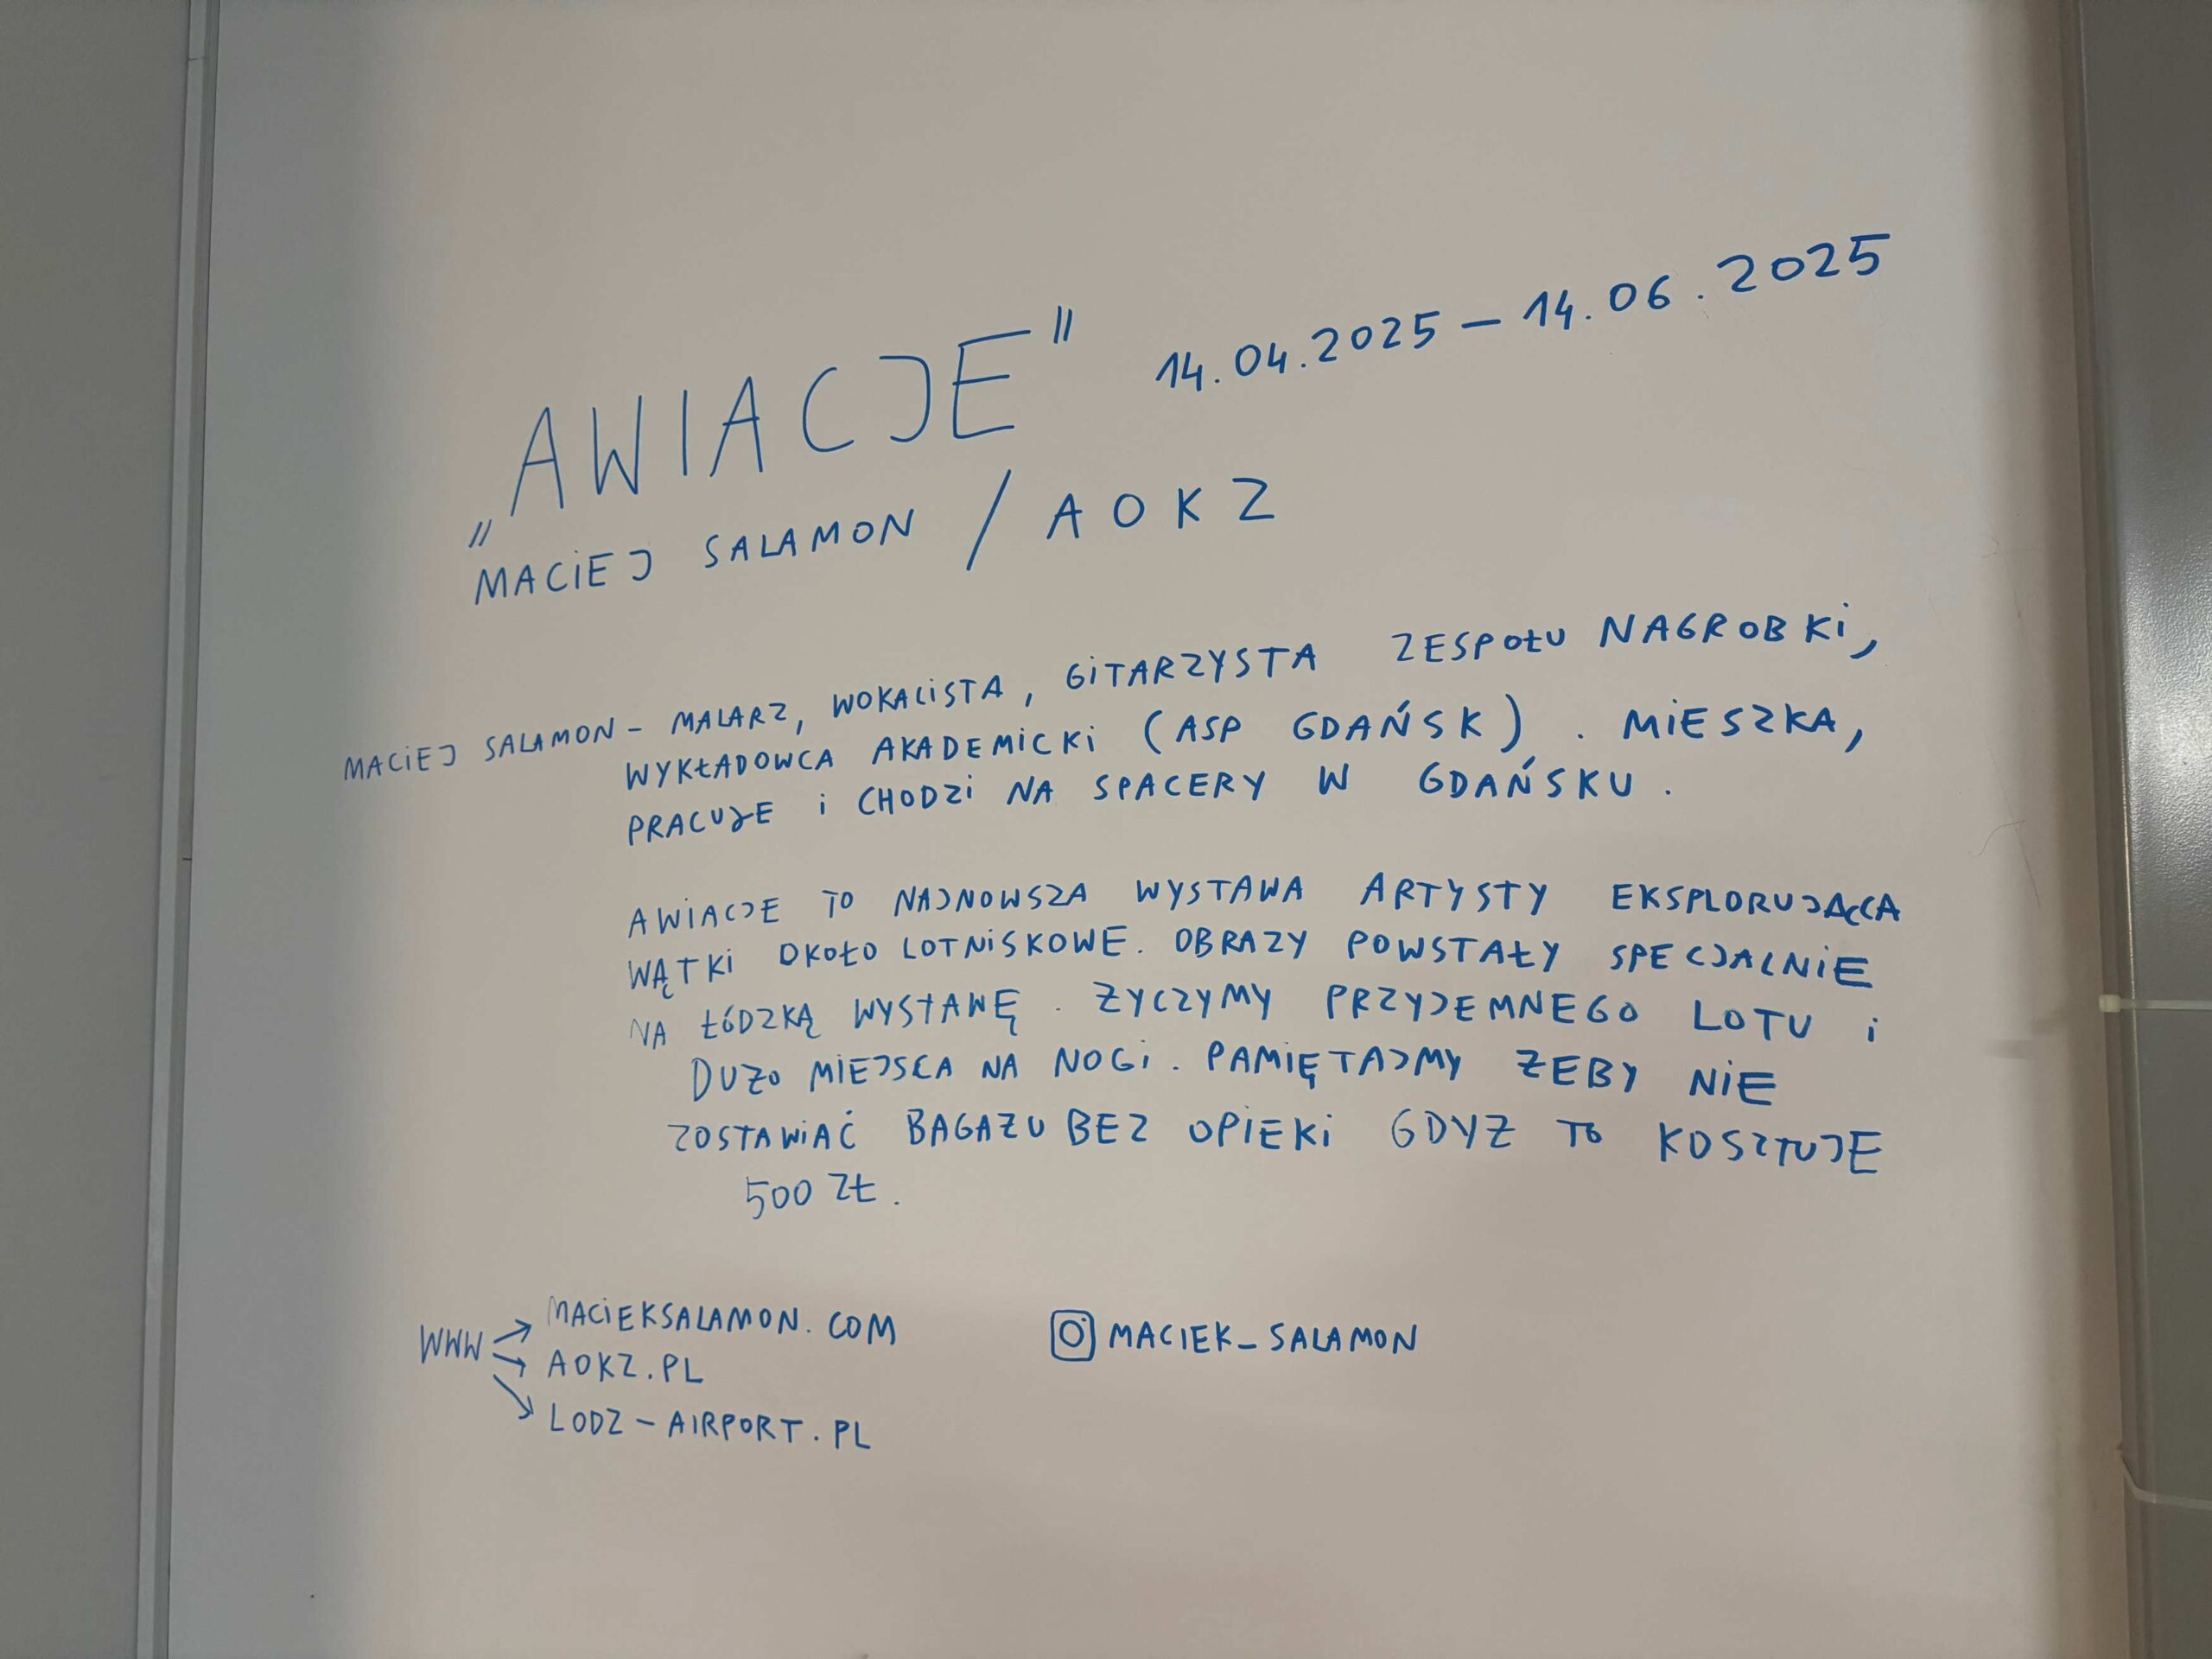 „AWIACJE" 14.04.2025 – 14.06.2025
MACIEJ SALAMON / AOKZ
MACIEJ SALAMON – MALARZ, WOKALISTA, GITARZYSTA ZESPOŁU NAGROBKI,
WYKŁADOWCA AKADEMICKI (ASP GDAŃSK). MIESZKA,
PRACUJE i CHODZI NA SPACERY W GDAŃSKU.
AWIACJE TO NAJNOWSZA WYSTAWA ARTYSTY EKSPLORUJĄCA
WĄTKI OKOŁO LOTNISKOWE. OBRAZY POWSTAŁY SPECJALNIE
NA ŁÓDZKĄ WYSTAWĘ. ŻYCZYMY PRZYJEMNEGO LOTU i
DUŻO MIEJSCA NA NOGI. PAMIĘTAJMY ŻEBY NIE
ZOSTAWIAĆ BAGAŻU BEZ OPIEKI GDYŻ TO KOSZTUJE
500 ZŁ.
WWW → MACIEKSALAMON.COM
→ AOKZ.PL
→ LODZ-AIRPORT.PL
MACIEK_SALAMON